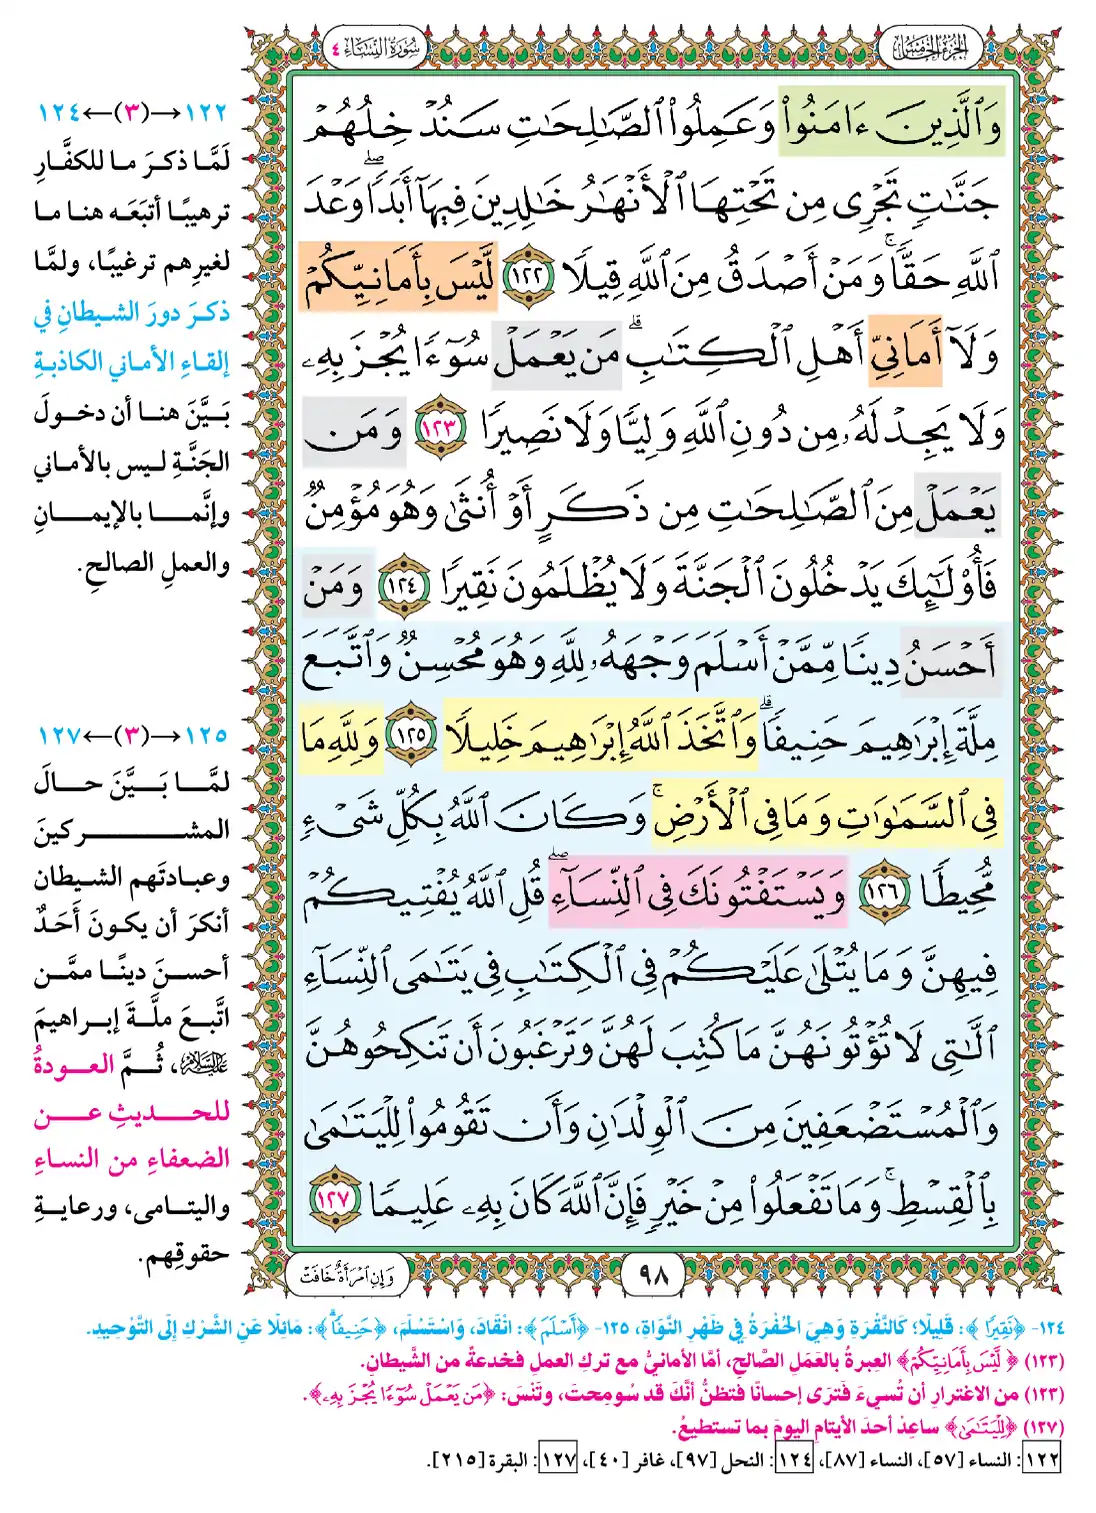 الجزء الخامس
سورة النساء ٤
وَٱلَّذِينَ ءَامَنُوا۟ وَعَمِلُوا۟ ٱلصَّٰلِحَٰتِ سَنُدْخِلُهُمْ
جَنَّٰتٍ تَجْرِى مِن تَحْتِهَا ٱلْأَنْهَٰرُ خَٰلِدِينَ فِيهَآ أَبَدًا ۖ وَعْدَ
ٱللَّهِ حَقًّا ۚ وَمَنْ أَصْدَقُ مِنَ ٱللَّهِ قِيلًا ١٢٢ لَّيْسَ بِأَمَانِيِّكُمْ
وَلَآ أَمَانِىِّ أَهْلِ ٱلْكِتَٰبِ ۗ مَن يَعْمَلْ سُوٓءًا يُجْزَ بِهِۦ
وَلَا يَجِدْ لَهُۥ مِن دُونِ ٱللَّهِ وَلِيًّا وَلَا نَصِيرًا ١٢٣ وَمَن
يَعْمَلْ مِنَ ٱلصَّٰلِحَٰتِ مِن ذَكَرٍ أَوْ أُنثَىٰ وَهُوَ مُؤْمِنٌ
فَأُو۟لَٰٓئِكَ يَدْخُلُونَ ٱلْجَنَّةَ وَلَا يُظْلَمُونَ نَقِيرًا ١٢٤ وَمَنْ
أَحْسَنُ دِينًا مِّمَّنْ أَسْلَمَ وَجْهَهُۥ لِلَّهِ وَهُوَ مُحْسِنٌ وَٱتَّبَعَ
مِلَّةَ إِبْرَٰهِيمَ حَنِيفًا ۗ وَٱتَّخَذَ ٱللَّهُ إِبْرَٰهِيمَ خَلِيلًا ١٢٥ وَلِلَّهِ مَا
فِى ٱلسَّمَٰوَٰتِ وَمَا فِى ٱلْأَرْضِ ۚ وَكَانَ ٱللَّهُ بِكُلِّ شَىْءٍ
مُّحِيطًا ١٢٦ وَيَسْتَفْتُونَكَ فِى ٱلنِّسَآءِ ۖ قُلِ ٱللَّهُ يُفْتِيكُمْ
فِيهِنَّ وَمَا يُتْلَىٰ عَلَيْكُمْ فِى ٱلْكِتَٰبِ فِى يَتَٰمَى ٱلنِّسَآءِ
ٱلَّٰتِى لَا تُؤْتُونَهُنَّ مَا كُتِبَ لَهُنَّ وَتَرْغَبُونَ أَن تَنكِحُوهُنَّ
وَٱلْمُسْتَضْعَفِينَ مِنَ ٱلْوِلْدَٰنِ وَأَن تَقُومُوا۟ لِلْيَتَٰمَىٰ
بِٱلْقِسْطِ ۚ وَمَا تَفْعَلُوا۟ مِنْ خَيْرٍ فَإِنَّ ٱللَّهَ كَانَ بِهِۦ عَلِيمًا ١٢٧
١٢٢→(٣)←١٢٤
لَمَّا ذكرَ ما للكفَّارِ
ترهيبًا أتبَعَه هنا ما
لغيرِهم ترغيبًا، ولمَّا
ذكرَ دورَ الشيطانِ في
إلقاءِ الأماني الكاذبةِ
بَيَّنَ هنا أن دخولَ
الجَنَّةِ ليس بالأماني
وإنَّما بالإيمانِ
والعملِ الصالحِ.
١٢٥→(٣)←١٢٧
لمَّا بَيَّنَ حالَ
المشركينَ
وعبادتَهم الشيطان
أنكرَ أن يكونَ أَحَدٌ
أحسنَ دينًا ممَّن
اتَّبعَ ملَّةَ إبراهيمَ
عليه السلام، ثُمَّ العودةُ
للحديثِ عن
الضعفاءِ من النساءِ
واليتامى، ورعايةِ
حقوقِهم.
٩٨
وَإِنِ ٱمْرَأَةٌ خَافَتْ
١٢٤- ﴿نَقِيرًا﴾: قَلِيلًا؛ كَالنُّقْرَةِ وَهِيَ الحُفْرَةُ فِي ظَهْرِ النَّوَاةِ، ١٢٥- ﴿أَسْلَمَ﴾: انْقَادَ، وَاسْتَسْلَمَ، ﴿حَنِيفًا ۗ﴾: مَائِلًا عَنِ الشِّرْكِ إِلَى التَّوْحِيدِ.
(١٢٣) ﴿لَّيْسَ بِأَمَانِيِّكُمْ﴾ العِبرةُ بالعَمَلِ الصَّالحِ، أمَّا الأمانيُّ مع تركِ العملِ فخدعةٌ من الشَّيطانِ.
(١٢٣) من الاغترارِ أن تُسيءَ فَترَى إحسانًا فتظنُّ أنَّكَ قد سُومِحتَ، وتَنْسَ: ﴿مَن يَعْمَلْ سُوٓءًا يُجْزَ بِهِۦ﴾.
(١٢٧) ﴿لِلْيَتَٰمَىٰ﴾ ساعِدْ أحدَ الأيتامِ اليومَ بما تستطيعُ.
١٢٢: النساء [٥٧]، النساء [٨٧]، ١٢٤: النحل [٩٧]، غافر [٤٠]، ١٢٧: البقرة [٢١٥].